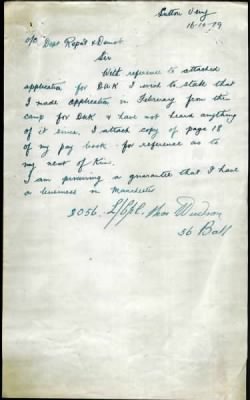 Sutton Veny
16-10-19
o/c Dept Repat & Demob
Sir
With reference to attached
application for DUK I wish to state that
I made application in February from this
camp for DUK & have not heard anything
of it since. I attach copy of page 18
of my pay book for reference as to
my next of Kin.
I am procuring a guarantee that I have
a business in Manchester
2056. L/Cpl. Thos
36 Batt